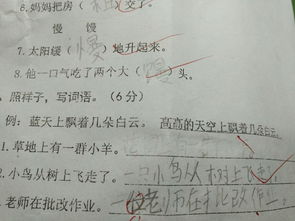 6.妈妈把房（ ）交了。
慢 馒
7.太阳缓（慢）地升起来。
8.他一口气吃了两个大（馒）头。
照样子，写词语。（6分）
例：蓝天上飘着几朵白云。 高高的天空上飘着几朵白云。
1.草地上有一群小羊。
2.小鸟从树上飞走了。 一只小鸟从树上飞走了
老师在批改作业。 一位老师在批改作业。